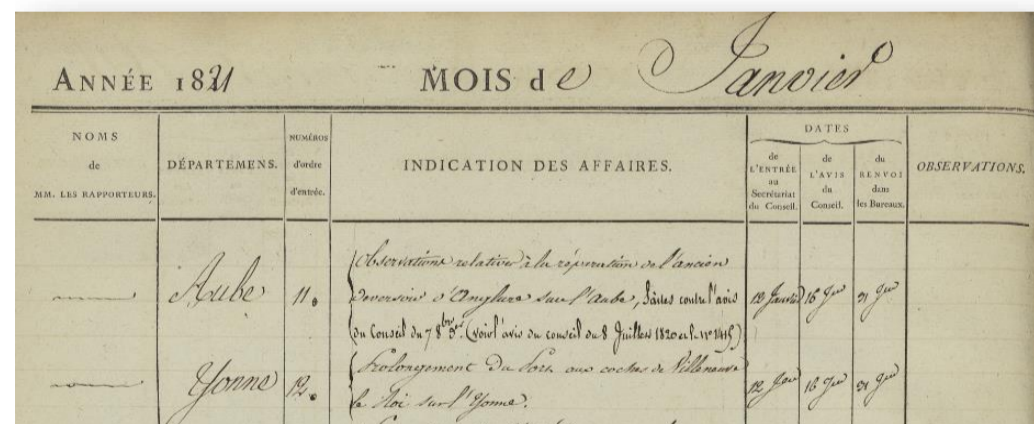 ANNÉE 1821 MOIS de Janvier
NOMS
de
MM. LES RAPPORTEURS.
DÉPARTEMENS.
NUMÉROS
d'ordre
d'entrée.
INDICATION DES AFFAIRES.
DATES
de
L'ENTRÉE
au
Secrétariat
du Conseil.
de
L'AVIS
du
Conseil.
du
RENVOI
dans
les Bureaux.
OBSERVATIONS.
Aube 11.
Observations relatives à la réparation de l'ancien
Deversoir d'Anglure sur l'Aube, faites contre l'avis
du Conseil du 7 8bre (voir l'avis du conseil du 8 Juillet 1820
12 Janvier 16 Jer 31 Jer
Yonne 12.
Prolongement Du Port aux coches de Villeneuve
le Roi sur l'Yonne.
12 Jer 16 Jer 31 Jer